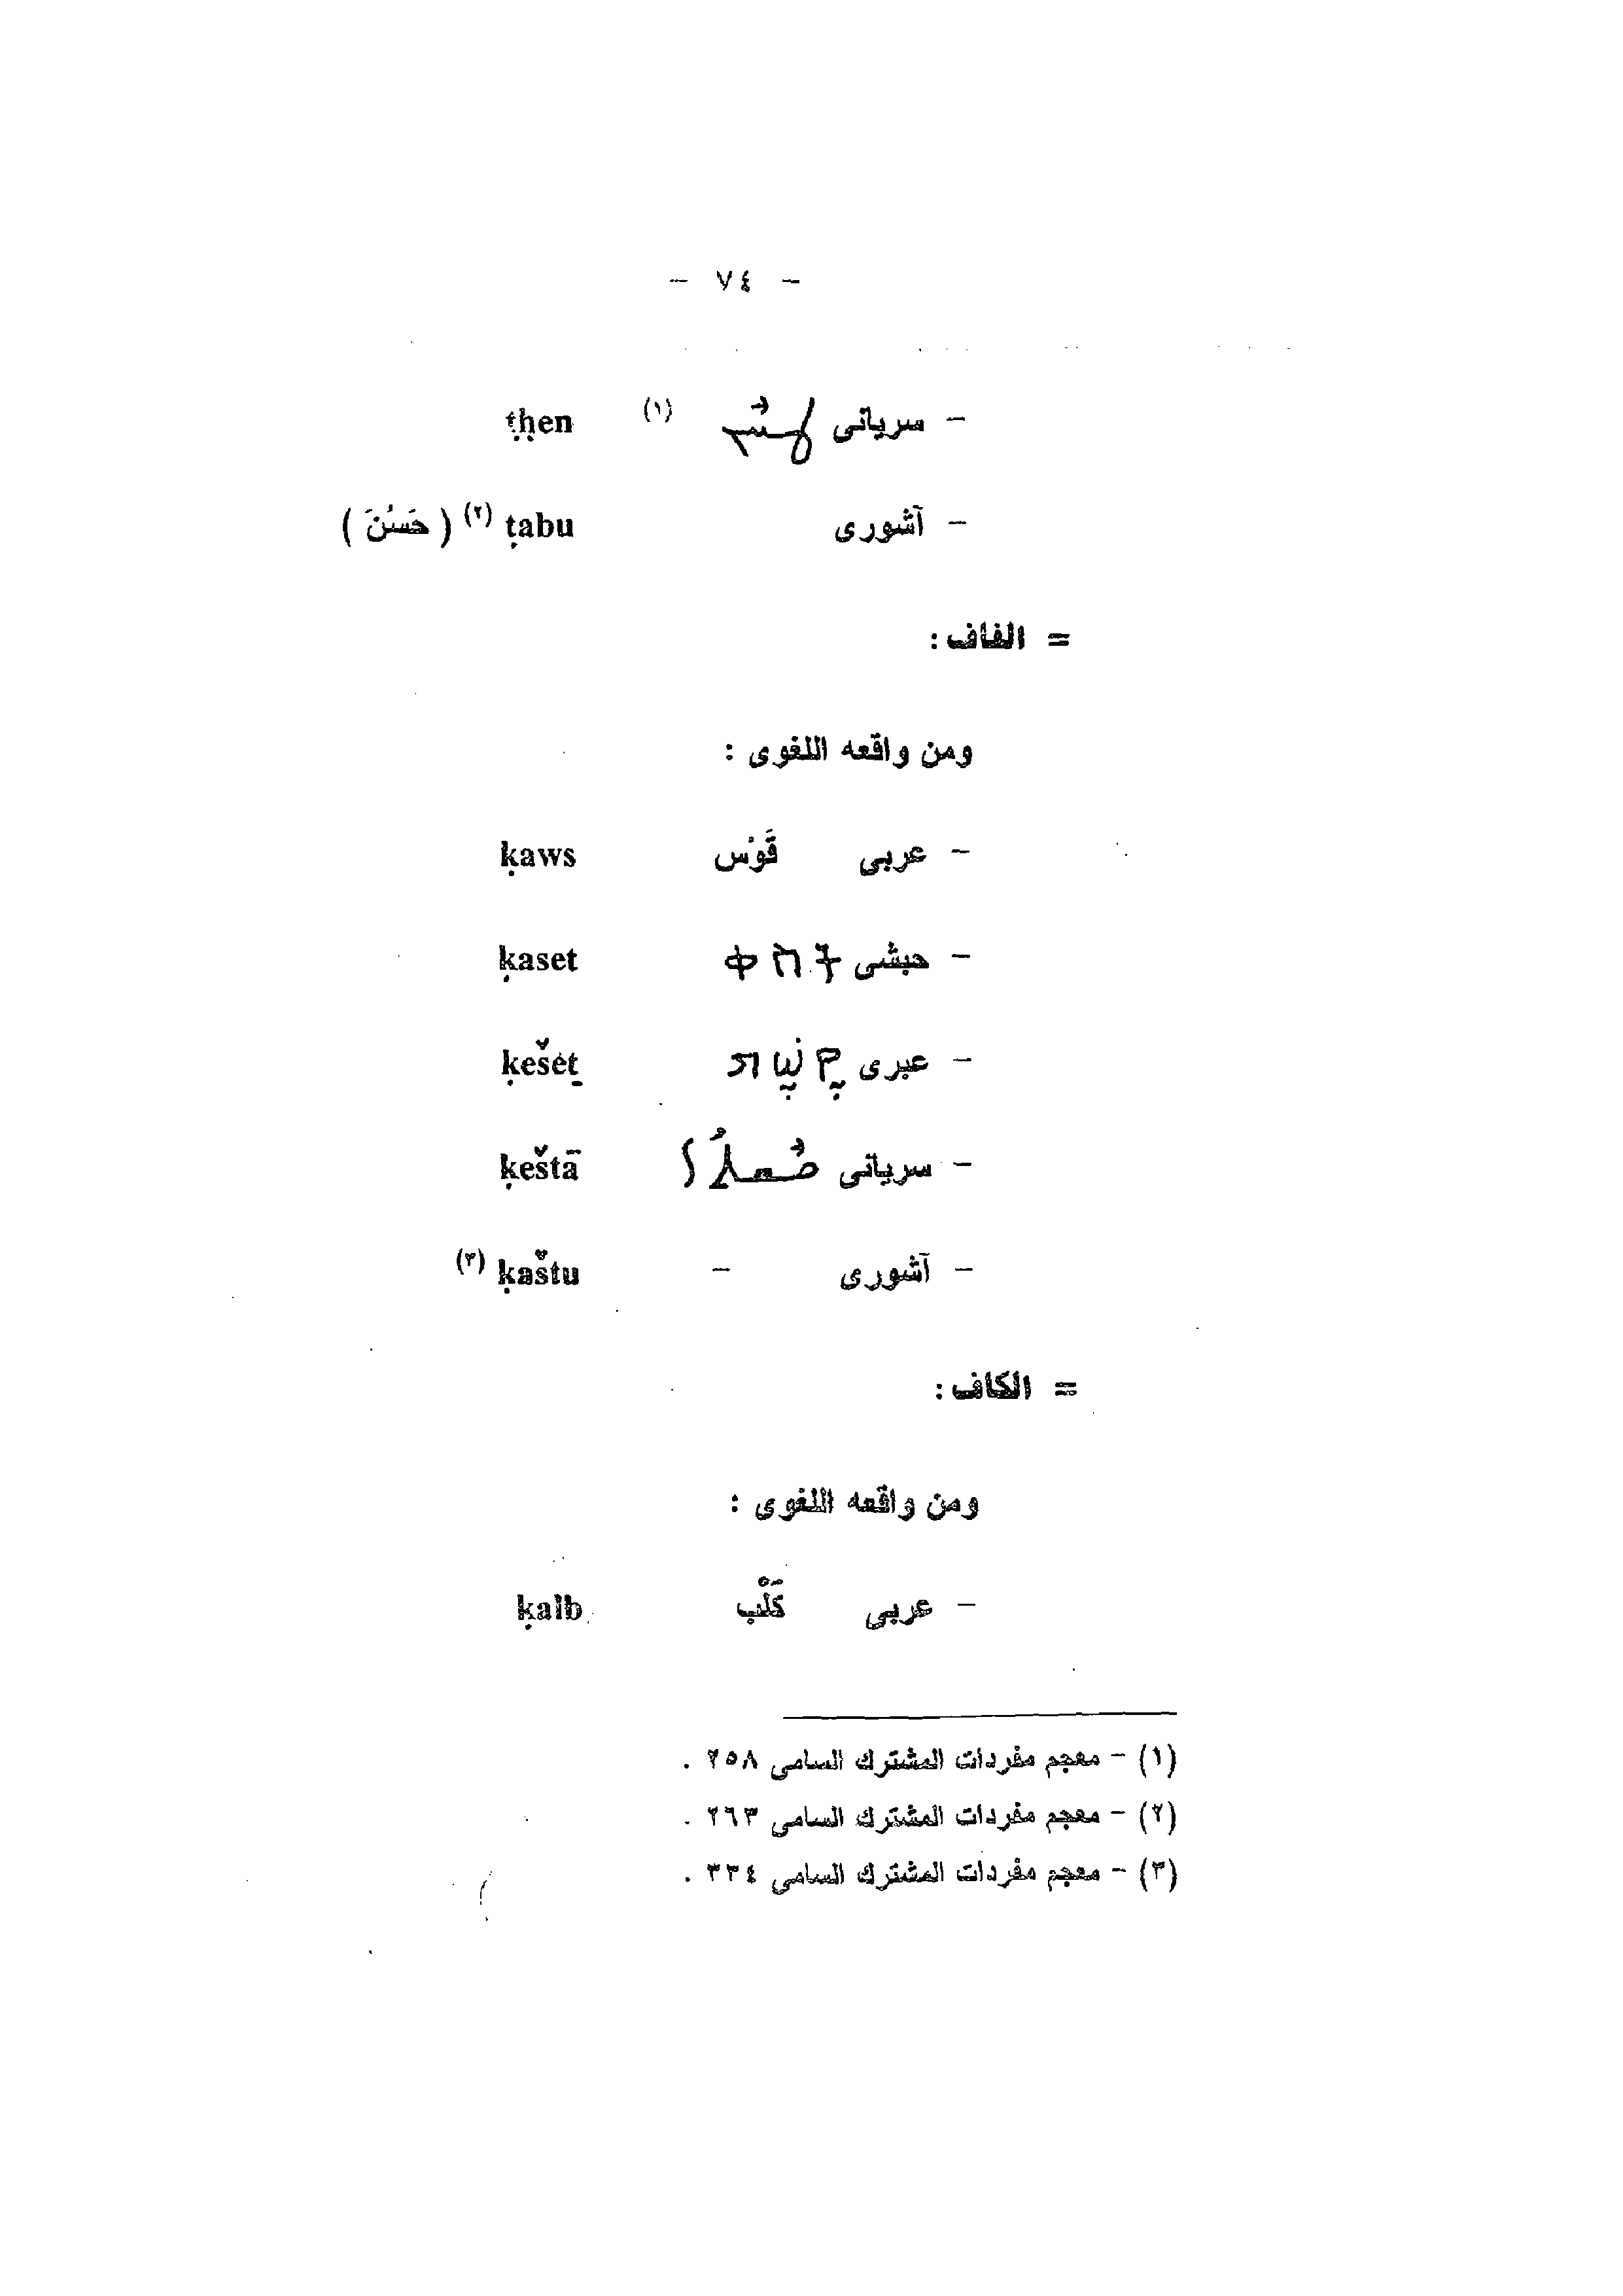 - ٧٤ -
- سريانى ܛܚܢ (١) ṭḥen
- آشورى ṭabu (٢) ( حَسُنَ )
= الفاف :
ومن واقعه اللغوى :
- عربى قَوْس ḳaws
- حبشى ቀስት ḳaset
- عبرى קֶשֶׁת ḳešeṯ
- سريانى ܩܫܬܐ ḳeštā
- آشورى - ḳaštu (٣)
= الكاف :
ومن واقعه اللغوى :
- عربى كَلْب ḳalb
(١) - معجم مفردات المشترك السامى ٢٥٨ .
(٢) - معجم مفردات المشترك السامى ٢٦٣ .
(٣) - معجم مفردات المشترك السامى ٣٣٤ .